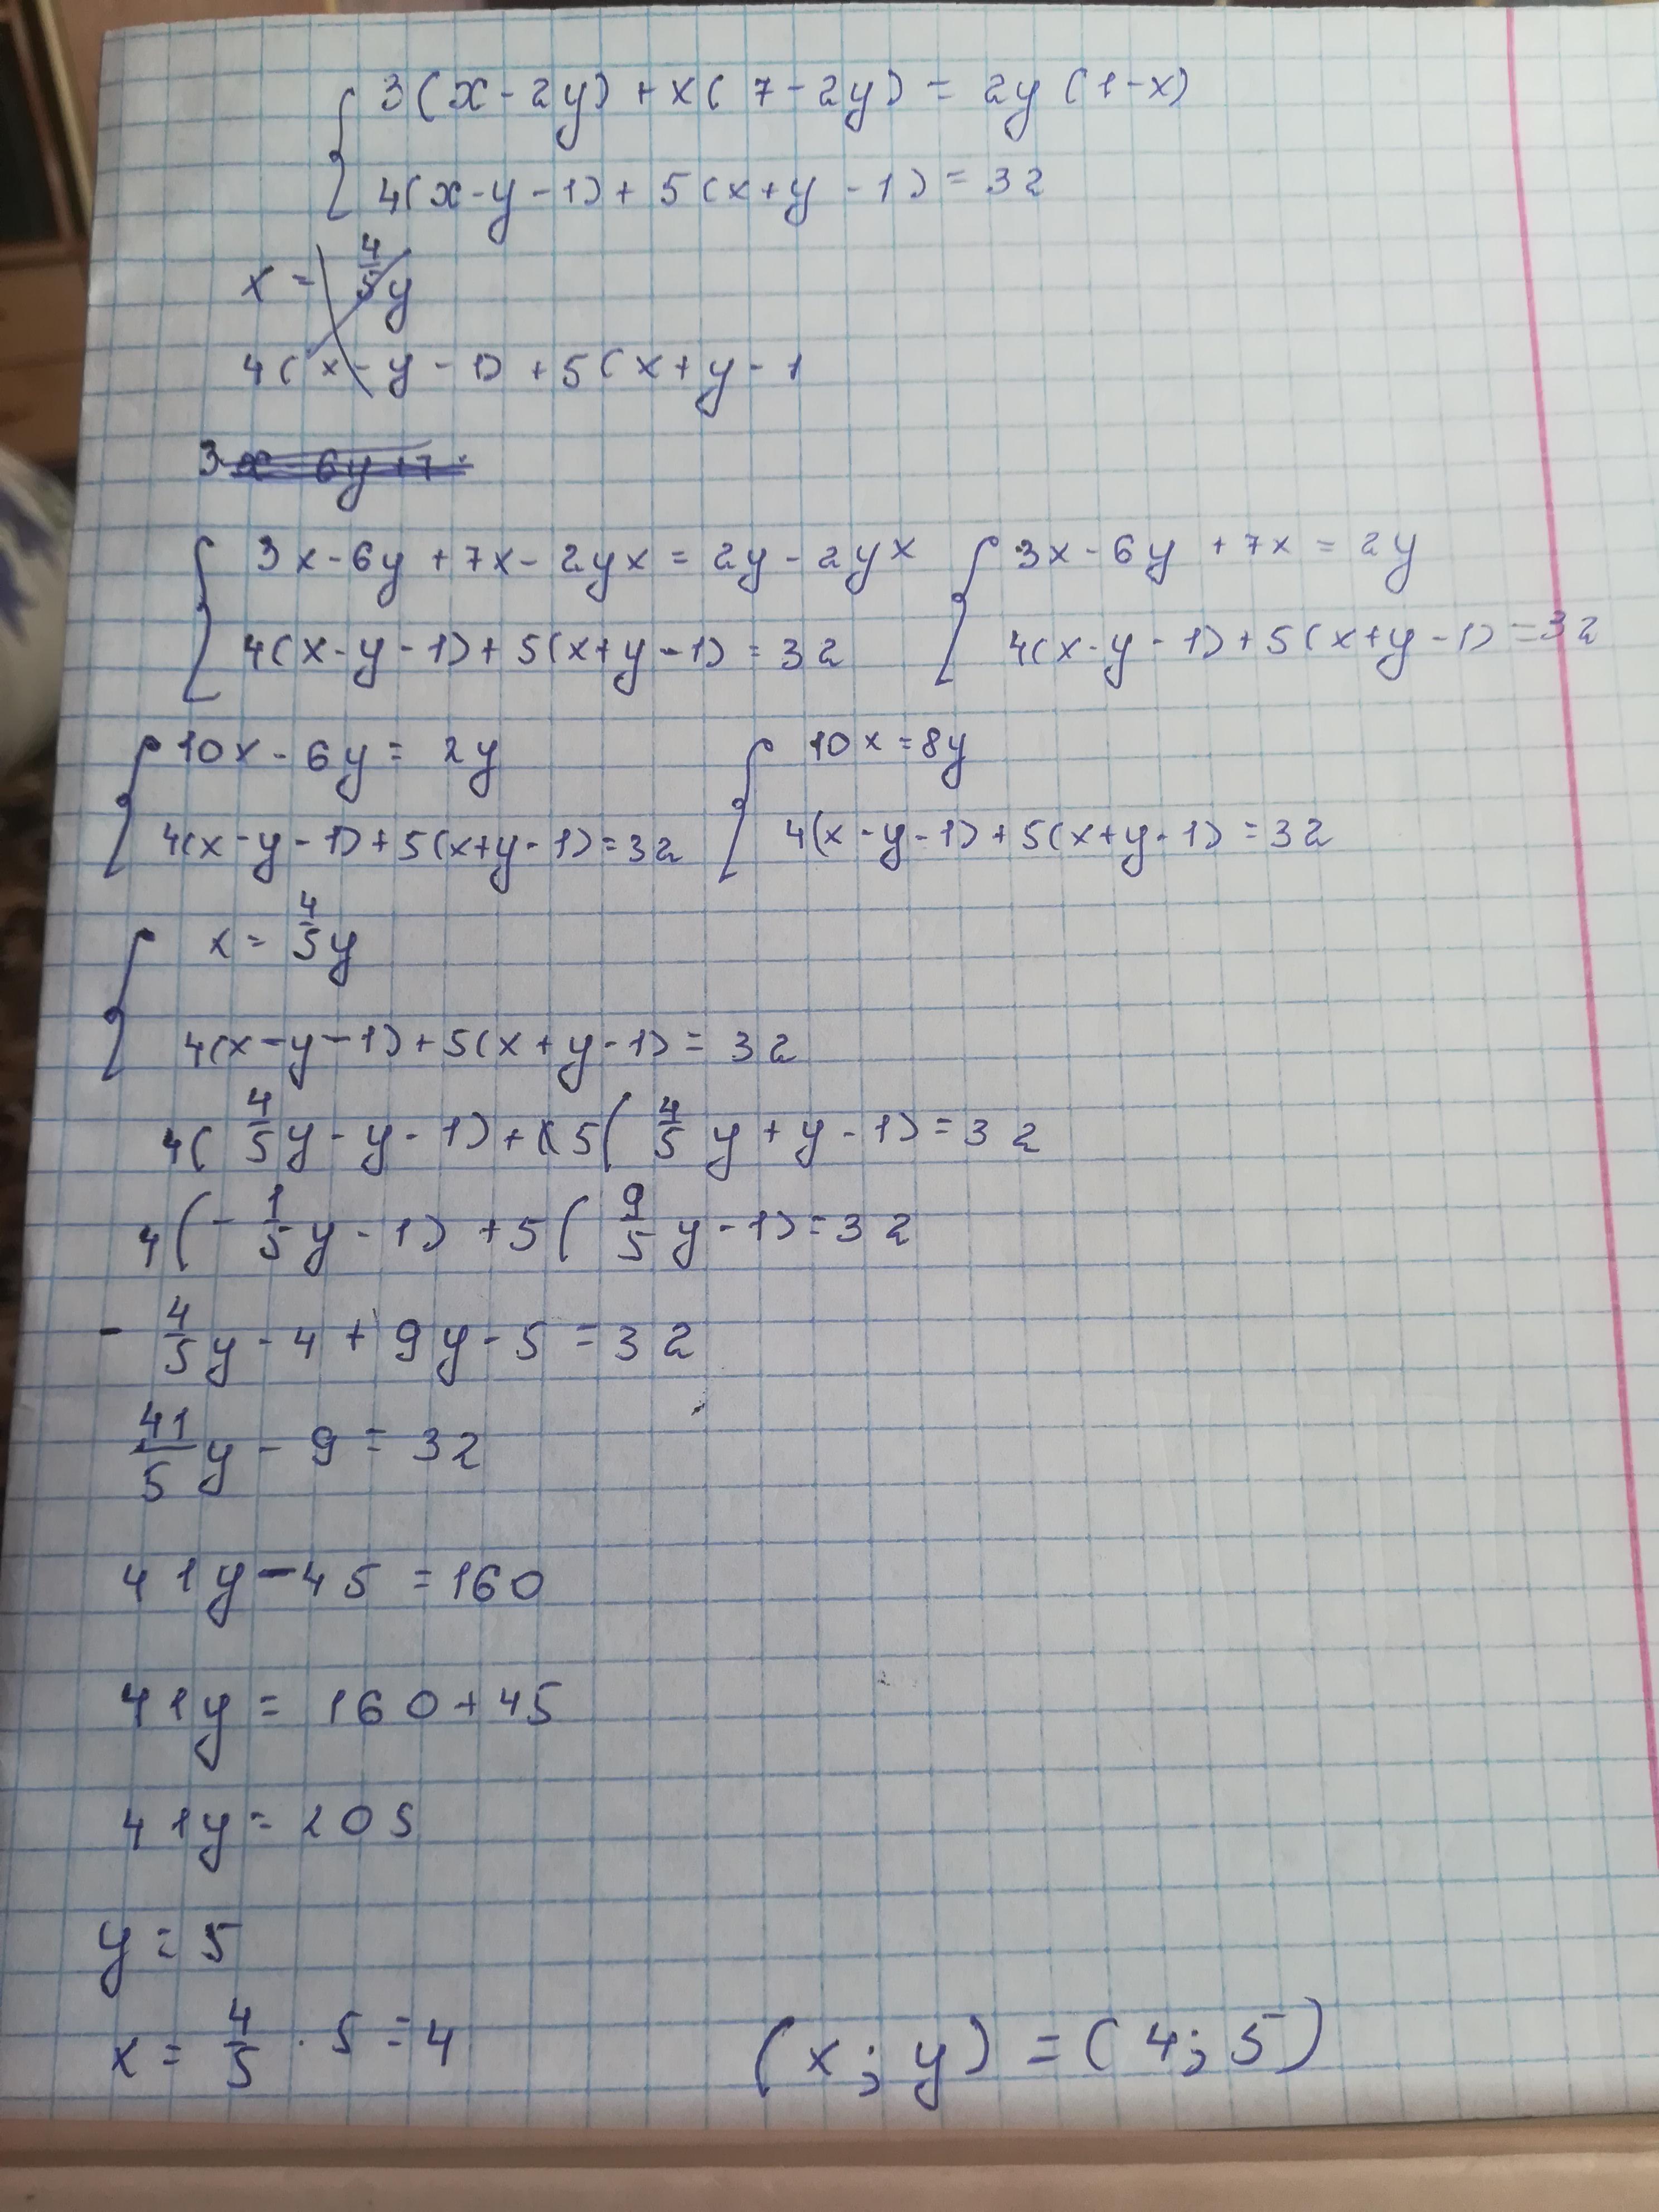 3(x-2y)+x(7-2y)=2y(1-x)
4(x-y-1)+5(x+y-1)=32
x= 4/5 y
4(x-y-1)+5(x+y-1
3x-6y+7
3x-6y+7x-2yx=2y-2yx 3x-6y+7x=2y
4(x-y-1)+5(x+y-1)=32 4(x-y-1)+5(x+y-1)=32
10x-6y=2y 10x=8y
4(x-y-1)+5(x+y-1)=32 4(x-y-1)+5(x+y-1)=32
x= 4/5 y
4(x-y-1)+5(x+y-1)=32
4(4/5 y-y-1)+5(4/5 y+y-1)=32
4(-1/5 y-1)+5(9/5 y-1)=32
-4/5 y-4+9y-5=32
41/5 y-9=32
41y-45=160
41y=160+45
41y=205
y=5
x=4/5·5=4 (x;y)=(4;5)